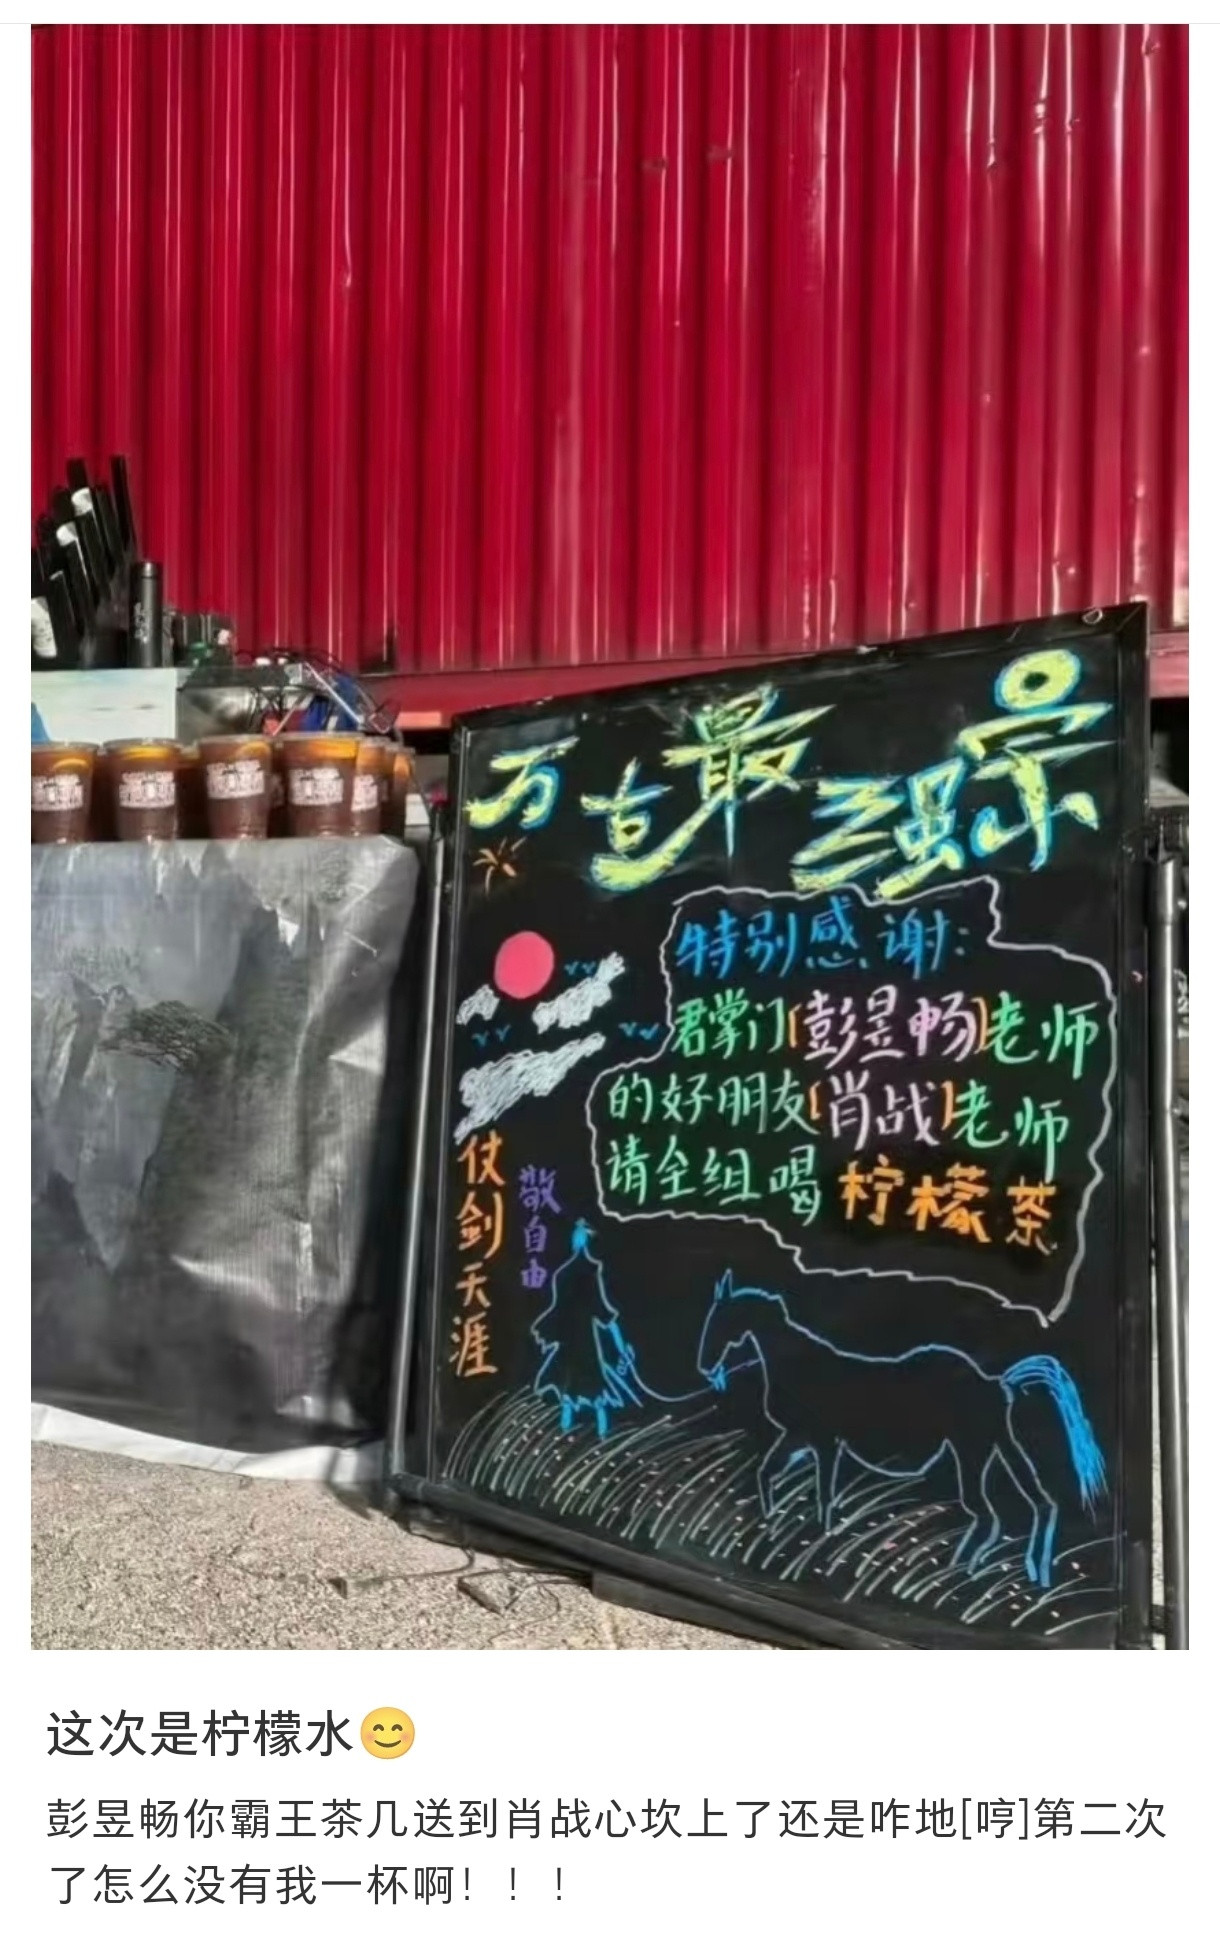 万古最强宗
特别感谢:
君掌门(彭昱畅)老师
的好朋友(肖战)老师
请全组喝柠檬茶
仗剑天涯
敬自由
这次是柠檬水😊
彭昱畅你霸王茶几送到肖战心坎上了还是咋地[哼]第二次
了怎么没有我一杯啊！！！